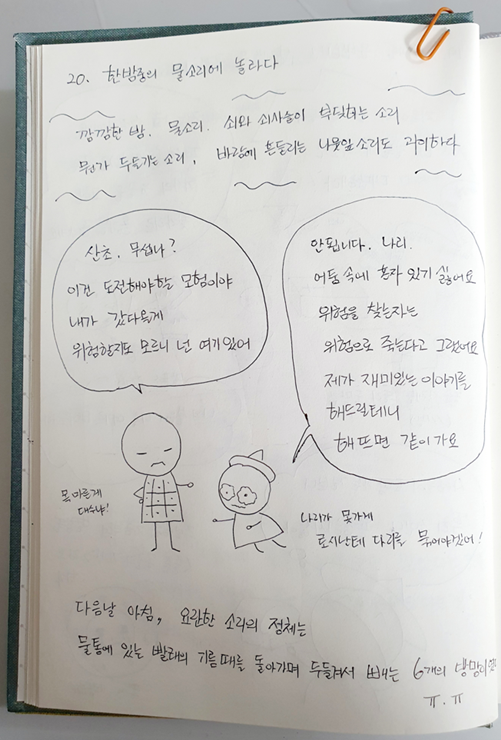 20.한밤중의 물소리에 놀라다
깜깜한 밤. 물소리. 쇠와 쇠사슬이 부딪히는 소리
뭔가 두들기는 소리, 바람에 흔들리는 나뭇잎 소리도 괴이하다
산초, 무섭나?
이건 도전해야할 모험이야
내가 갔다올게
위험할지도 모르니 넌 여기 있어
안됩니다. 나리.
어둠 속에 혼자 있기 싫어요
위험을 찾는자는
위험으로 죽는다고 그랬어요
제가 재미있는 이야기를
해드릴테니
해 뜨면 같이 가요
목마른게
대수냐!
나리가 못가게
로시난테 다리를 묶어야겠어!
다음날 아침, 요란한 소리의 정체는
물통에 있는 빨래의 기름때를 돌아가며 두들겨서 빼는 6개의 방망이였
ㅠ.ㅠ